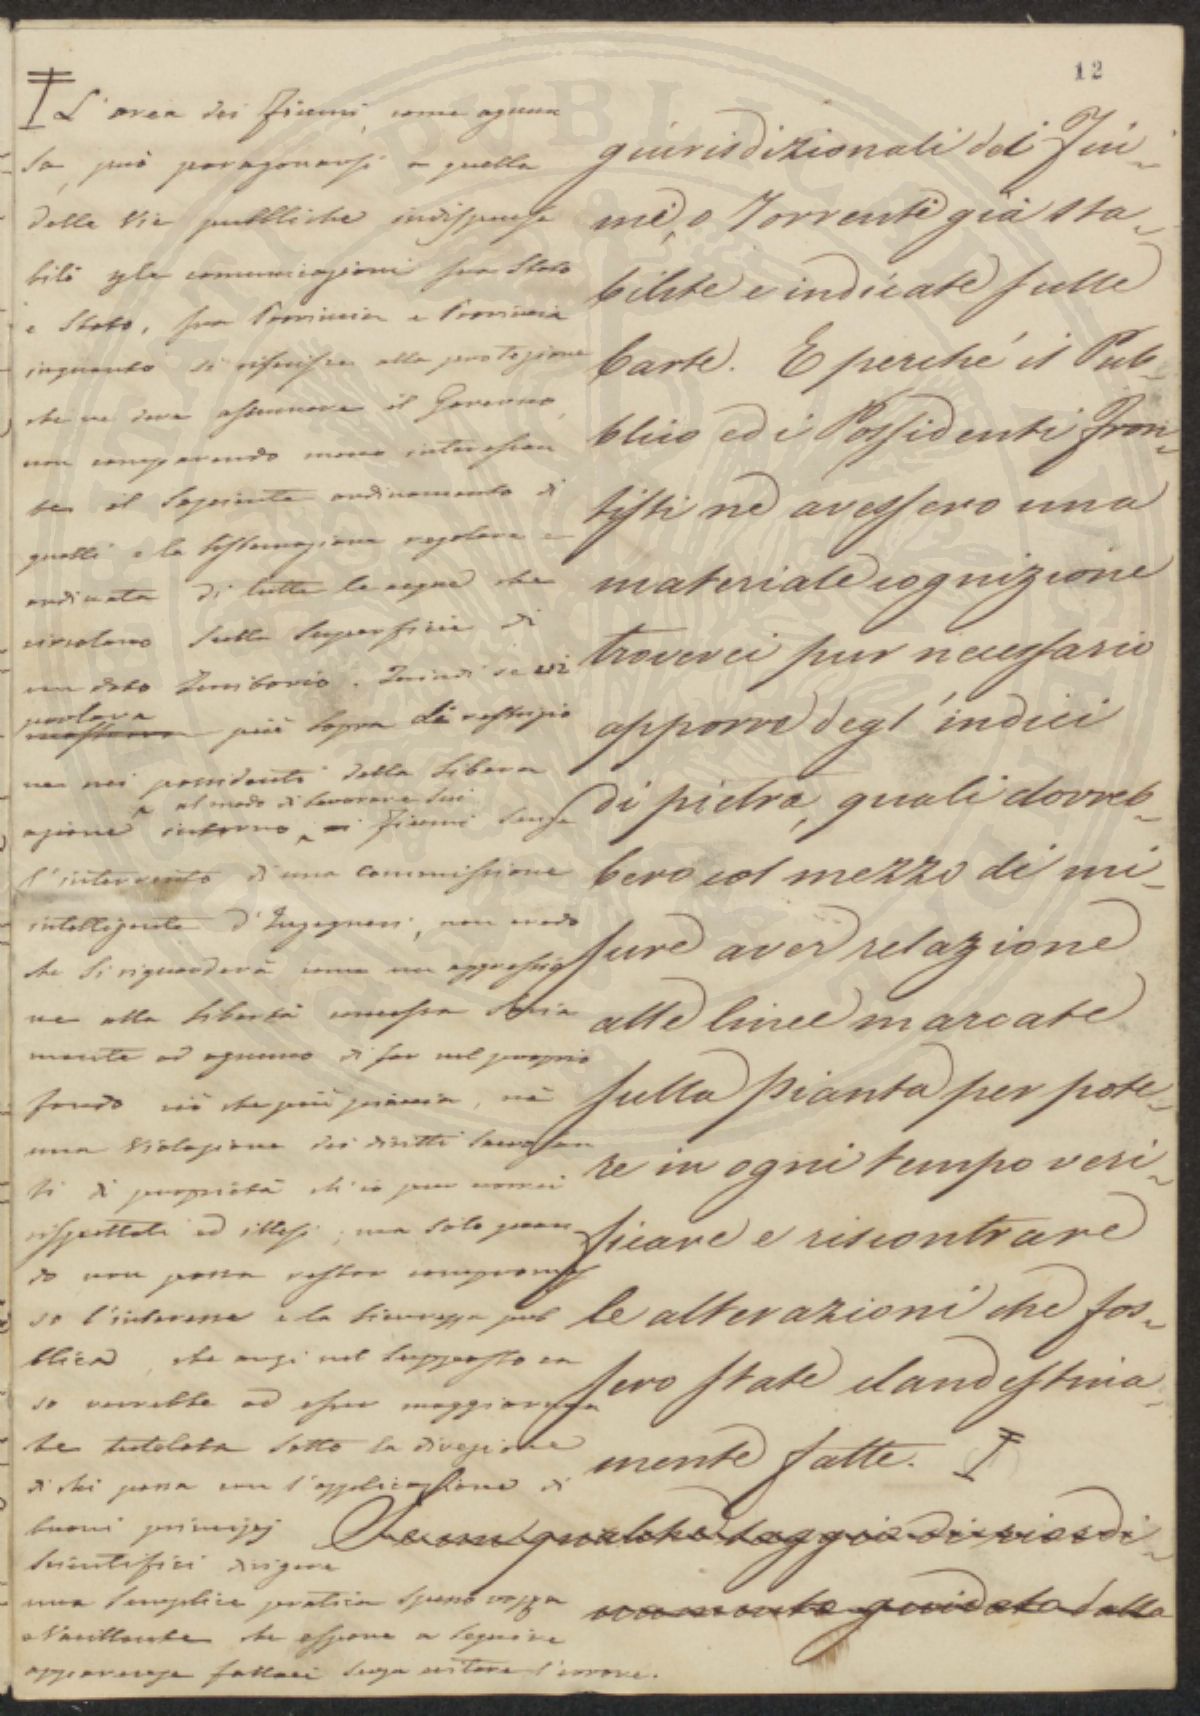 12
giurisdizionali dei Fiu-
mi, o Torrenti già sta-
bilite e indicate sulle
Carte. E perché il Pub-
blico ed i Possidenti Fron-
tisti ne avessero una
materiale cognizione
troverei pur necessario
apporre degl'indici
di pietra, quali dovreb-
bero col mezzo di mi-
sure aver relazione
alle linee marcate
sulla Pianta per pote-
re in ogni tempo veri-
ficare e riscontrare
le alterazioni che fos-
sero state clandestina-
mente fatte.
Se un qualche saggio di riordi-
guidato dalla
L'area dei Fiumi, come ognun
sa, può paragonarsi a quella
delle Vie pubbliche indispensa
bili alle comunicazioni fra Stato
e Stato, fra Provincia e Provincia
inquanto si riferisce alla protezione
che ne deve assumere il Governo,
non comparendo meno interessan
te il Sapiente ordinamento di
quelli e la sistemazione regolare e
ordinata di tutte le acque che
circolano sulla Superficie di
un dato Territorio. Quindi se
portava
più sopra la restrizio
ne nei possidenti della libera
al modo di lavorare sui
azione interno, ai fiumi senza
l'intervento di una commissione
intelligente d'Ingegneri, non credo
che si riguarderà come un oppressio
ne alla libertà concessa
mente ad ognuno di far nel proprio
fondo ciò che più piaccia, nè
una violazione dei diritti sacrosan
ti di proprietà ch'io pur vorrei
rispettati ed illesi; ma solo quan
do non possa restar compromes
so l'interesse e la sicurezza pub
blica, che anzi nel supposto ca
so verrebbe ad esser maggiormen
te tutelata sotto la direzione
di chi possa con l'applicazione di
buoni principj
scientifici dirigere
una semplice pratica spesso rozza
e vacillante che espone a seguire
apparenze fallaci senza evitare l'errore.